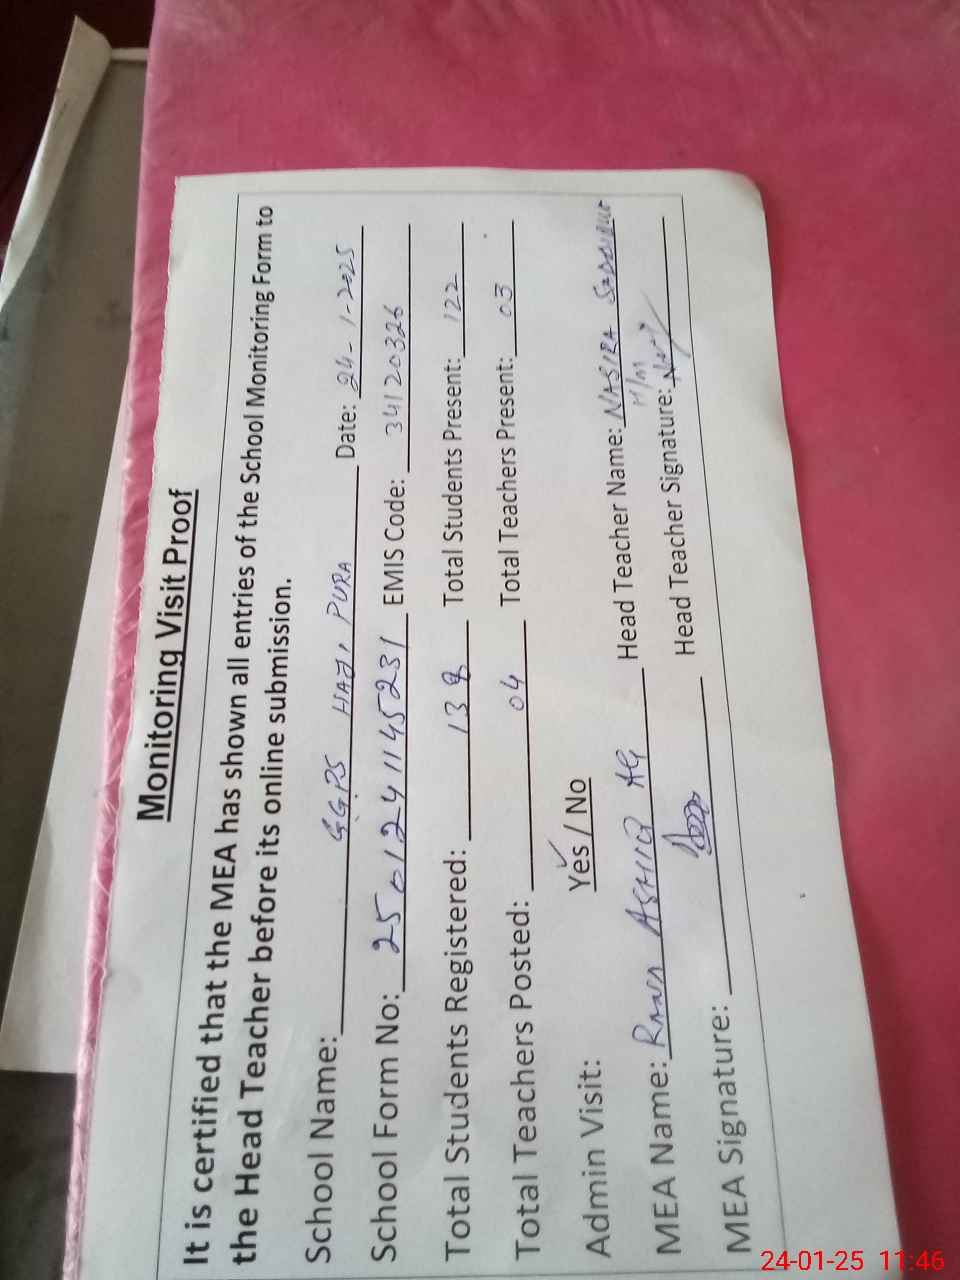 Monitoring Visit Proof
It is certified that the MEA has shown all entries of the School Monitoring Form to
the Head Teacher before its online submission.
School Name: GGPS HAJI PURA Date: 24-1-2025
School Form No: 250124114523 1 EMIS Code: 34120326
Total Students Registered: 138 Total Students Present: 122
Total Teachers Posted: 04 Total Teachers Present: 03
Admin Visit: Yes / No
MEA Name: RANA ASHIQ Head Teacher Name: NASIRA
H/M
MEA Signature: Head Teacher Signature:
24-01-25 11:46